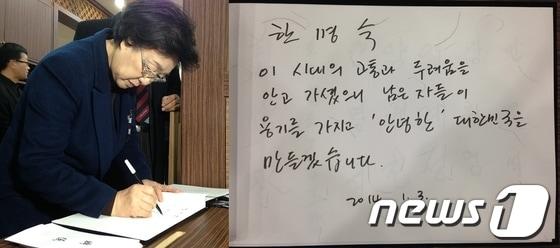 한 명 숙
이 시대의 고통과 두려움을
안고 가셨으니 남은 자들이
용기를 가지고 '안녕한' 대한민국을
만들겠습니다.
2014. 1. 3.
news1